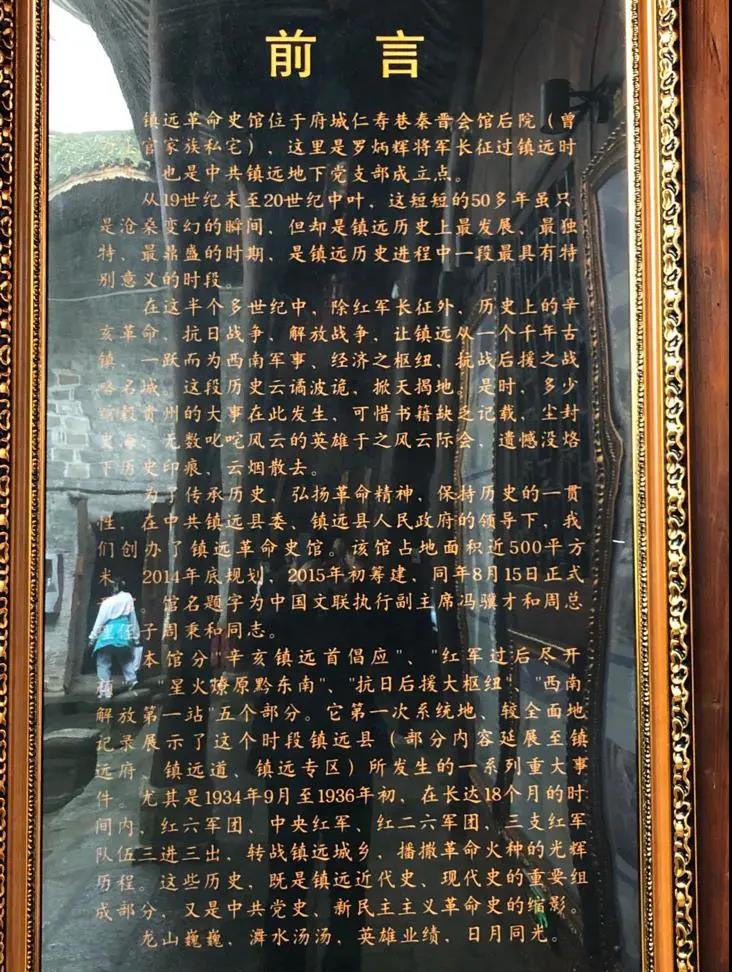 前言
镇远革命史馆位于府城仁寿巷秦晋会馆后院（曾
官家族私宅），这里是罗炳辉将军长征过镇远时
也是中共镇远地下党支部成立点。
从19世纪末至20世纪中叶，这短短的50多年虽只
是沧桑变幻的瞬间，但却是镇远历史上最发展、最独
特、最鼎盛的时期，是镇远历史进程中一段最具有特
别意义的时段。
在这半个多世纪中，除红军长征外，历史上的辛
亥革命、抗日战争、解放战争，让镇远从一个千年古
镇，一跃而为西南军事、经济之枢纽，抗战后援之战
略名城。这段历史云谲波诡，掀天揭地。是时，多少
贵州的大事在此发生，可惜书籍缺乏记载，尘封
史海；无数叱咤风云的英雄于之风云际会，遗憾没烙
下历史印痕，云烟散去。
为了传承历史，弘扬革命精神，保持历史的一贯
性，在中共镇远县委、镇远县人民政府的领导下，我
们创办了镇远革命史馆。该馆占地面积近500平方
米，2014年底规划，2015年初筹建，同年8月15日正式
。馆名题字为中国文联执行副主席冯骥才和周总
理侄子周秉和同志。
本馆分"辛亥镇远首倡应"、"红军过后尽开
"星火燎原黔东南"、"抗日后援大枢纽"、"西南
解放第一站"五个部分。它第一次系统地、较全面地
记录展示了这个时段镇远县（部分内容延展至镇
远府、镇远道、镇远专区）所发生的一系列重大事
件。尤其是1934年9月至1936年初，在长达18个月的时
间内，红六军团、中央红军、红二六军团，三支红军
队伍三进三出，转战镇远城乡，播撒革命火种的光辉
历程。这些历史，既是镇远近代史、现代史的重要组
成部分，又是中共党史、新民主主义革命史的缩影。
龙山巍巍，㵲水汤汤，英雄业绩，日月同光。